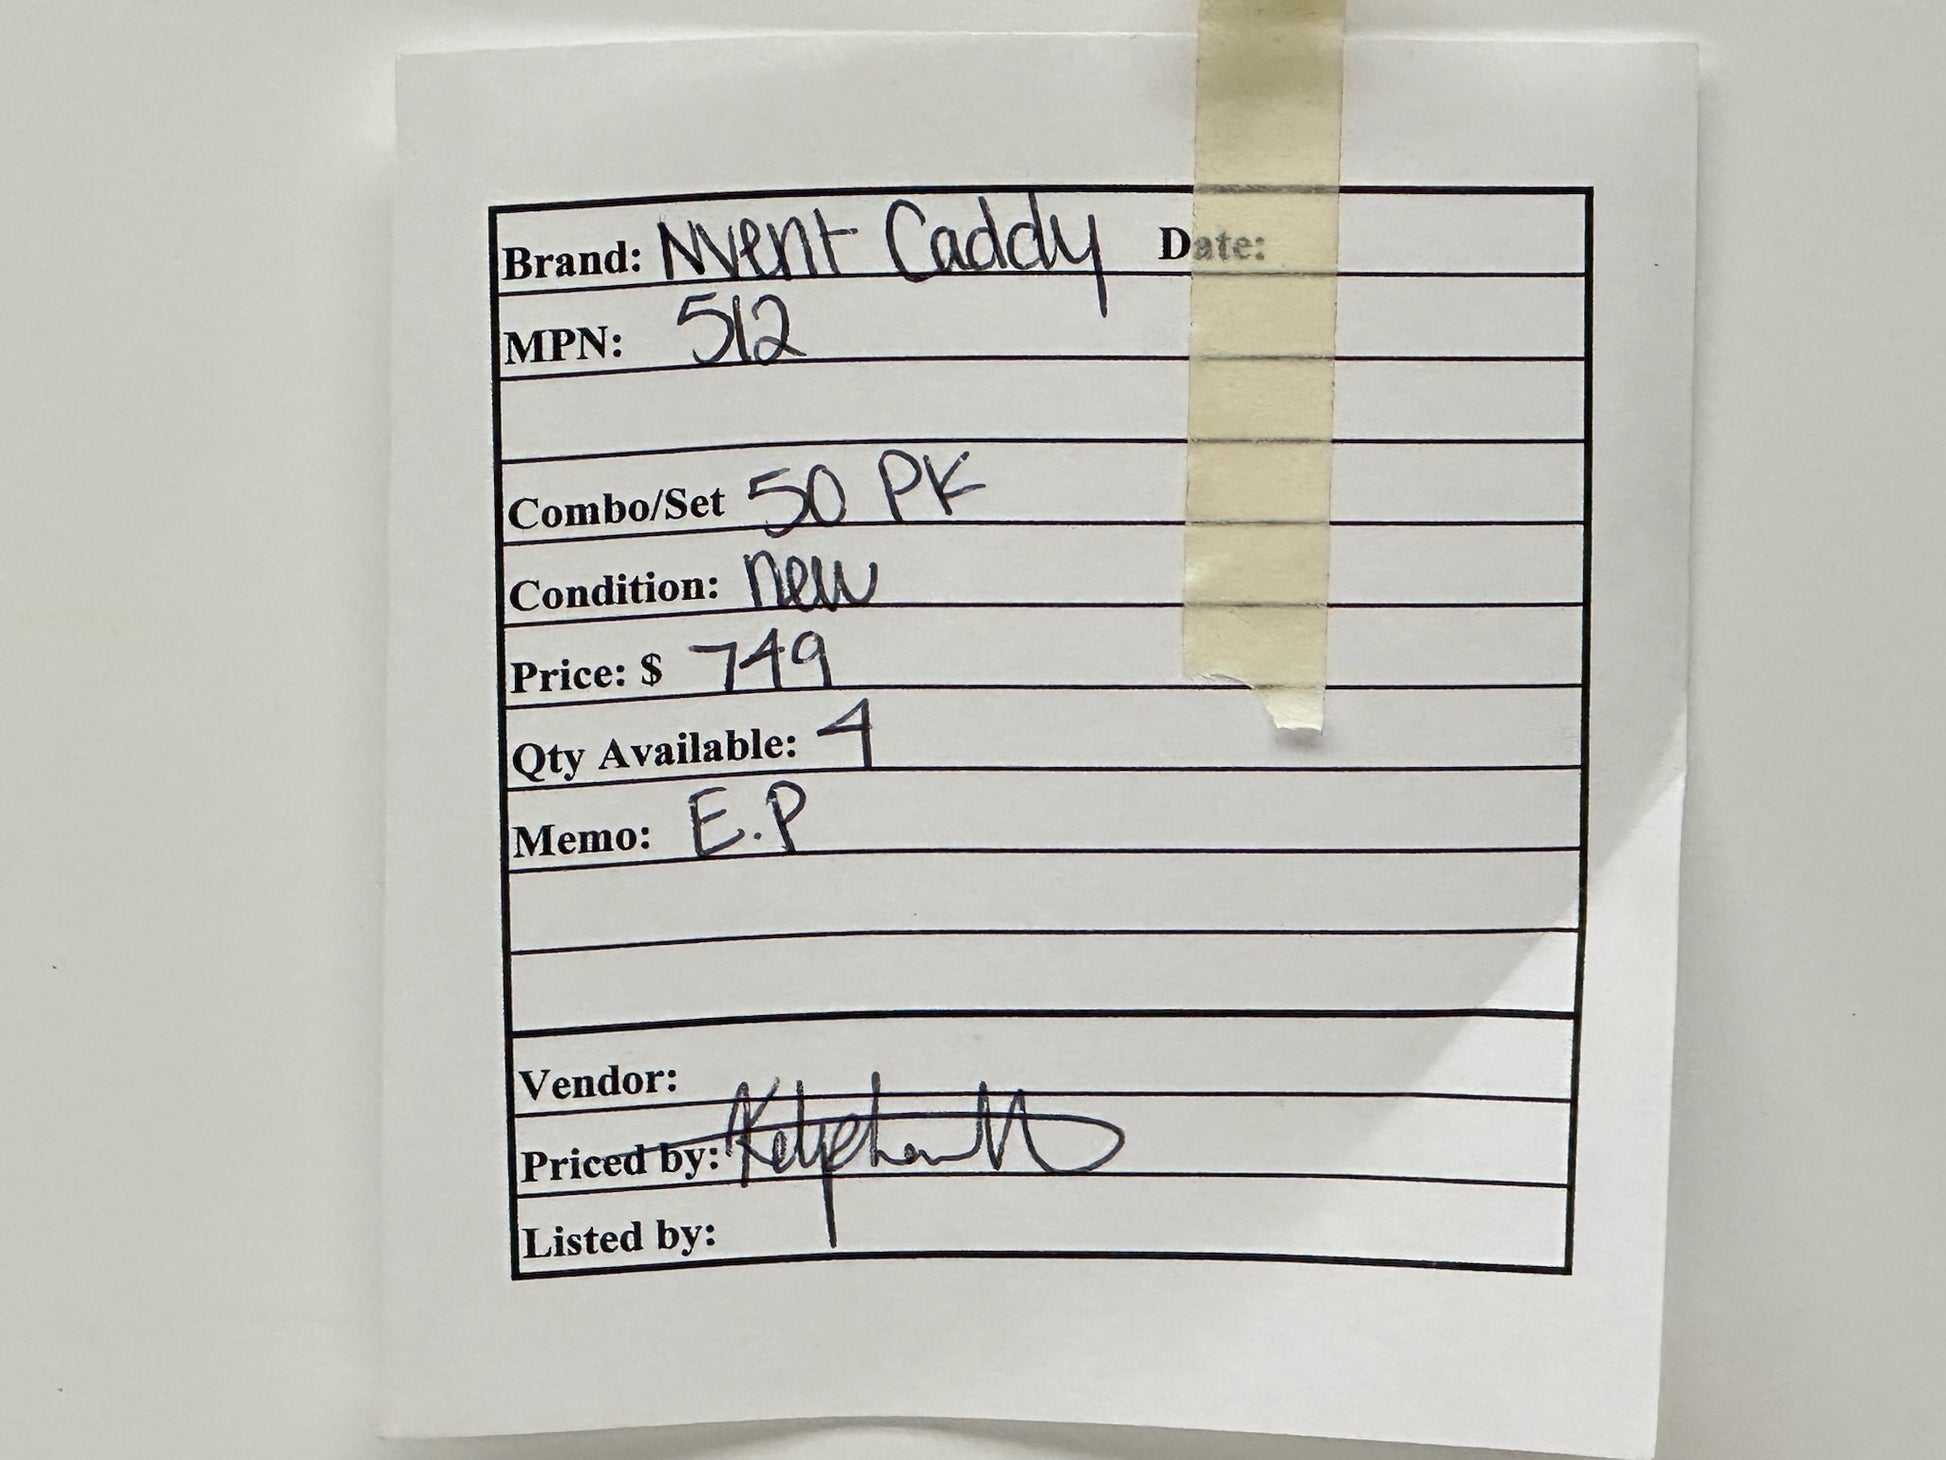 Brand: Nvent Caddy Date:
MPN: 512
Combo/Set 50 PK
Condition: New
Price: $ 749
Qty Available: 4
Memo: E.P
Vendor:
Priced by:
Listed by: